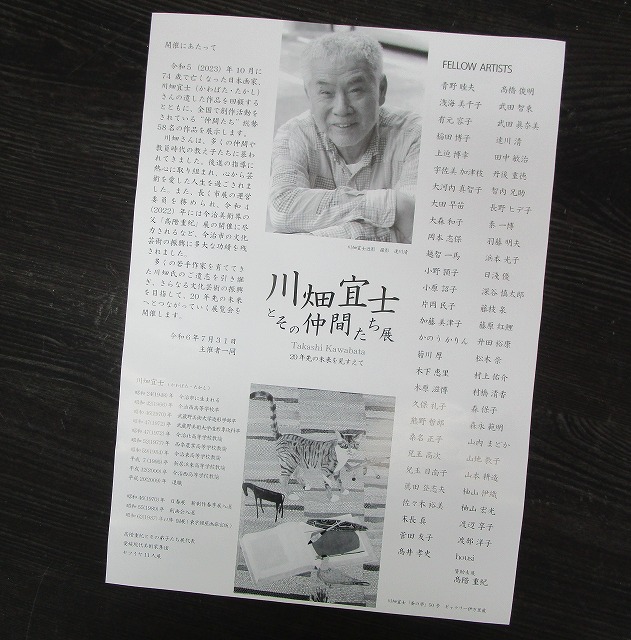 開催にあたって
令和5(2023)年10月に
74歳で亡くなった日本画家、
川畑宜士(かわばた・たかし)
さんの遺した作品を回顧する
とともに、全国で創作活動を
されている“仲間たち”総勢
58名の作品を展示します。
川畑さんは、多くの仲間や
教員時代の教え子たちに慕わ
れてきました。後進の指導に
熱心に取り組まれ、心から芸
術を愛した人生を過ごされま
した。また、長く市展の運営
委員を務められ、令和4
(2022)年には今治美術界の
父「髙階重紀」展の開催に尽
力されるなど、今治市の文化
芸術の振興に多大な功績を残
されました。
多くの若手作家を育ててき
た川畑氏のご遺志を引き継
ぎ、さらなる文化芸術の振興
を目指して、20年先の未来
へとつながっていく展覧会を
開催します。
令和6年7月31日
主催者一同
川畑宜士近影 撮影
川畑宜士
とその仲間たち展
Takashi Kawabata
20年先の未来を見すえて
川畑宜士(かわばた・たかし)
昭和24(1949)年 今治市に生まれる
今治西高等学校卒
武蔵野美術大学
退職
髙階重紀とその弟子たち展代表
愛媛現代美術家集団
セツイヤ11人展
FELLOW ARTISTS
青野睦夫 髙橋俊明
浅海美千子 武田智来
有元容子 武田眞奈美
稲田博子 達川清
上迫博幸 田中敏治
宇佐美加津枝 丹後重徳
大河内真智子 智内兄助
太田早苗 長野ヒデ子
大森和子 秦一博
岡本志保 羽藤明夫
越智一馬 浜本光子
小野頴子 日浅優
小原詔子 深谷慎太郎
片岡民子 藤枝泉
加藤美津子 藤原紅鯉
かのうかりん 升田裕康
菊川厚 松本奈
木下恵里 村上佑介
木原滋博 村橋清香
久保礼子 森保子
熊野哲郎 森永範明
桑名正子 山内まどか
児玉高次 山地敦子
児玉日南子 山本耕造
佐々木裕美 柚山宏光
末長真 渡辺享子
菅田友子 渡部洋子
髙井孝史 housi
賛助出展
髙階重紀